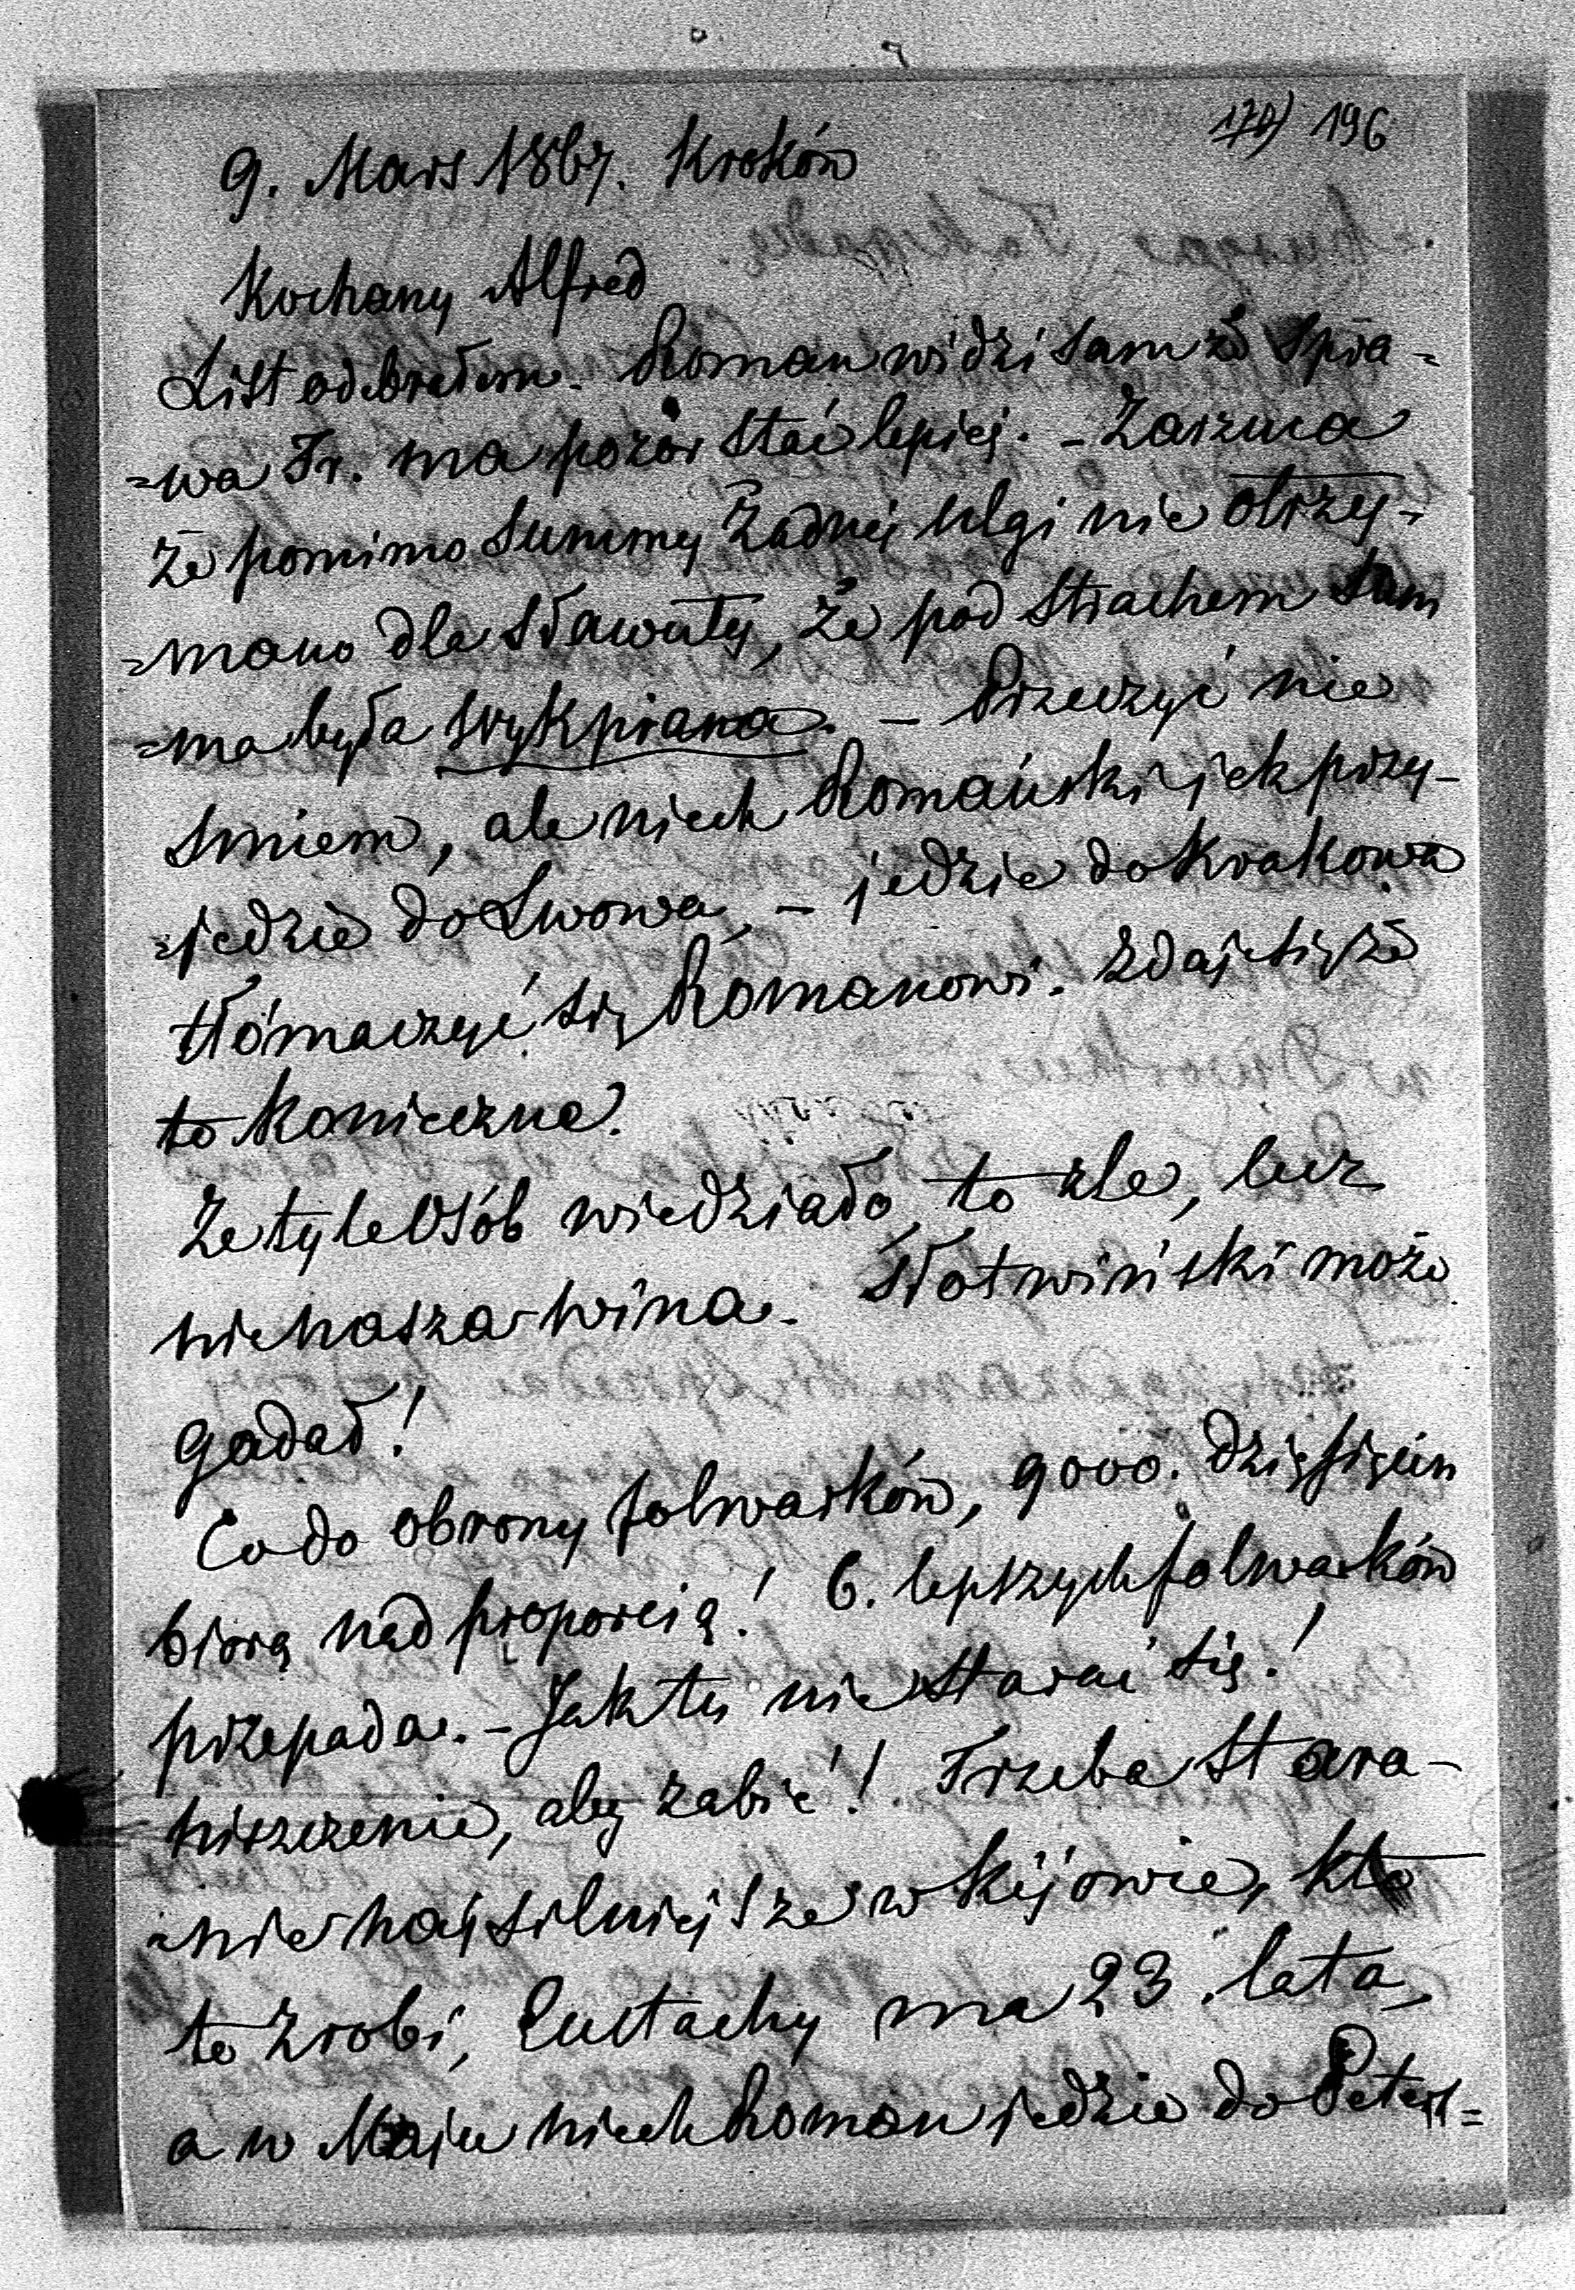 170) 196
9. Mars 1867. Kraków
Kochany Alfred
List odebrałem. Roman widzi sam że Spra=
=wa Fr. ma pozór stać lepiej. – Zarzuca
że pomimo Summy Żadnej Ulgi nie otrzy=
=mano dla Sławuty, Że pod Strachem Sum
=ma była wykpiana. – Przeczyć nie
Smiem, ale niech Romański jek przy-
=jedzie do Lwowa, – jedzie do Krakowa
tłómaczyć się Romanowi. Zdaje się że
to Konieczne.
Ze tyle Osób wiedziało, to zle, lecz
nie nasza wina. Słotwiński może
gadał!
Co do obrony folwarków, 9000. Dzięsięcin
biorą nad proporcią! 6. lepszych folwarków
przepada. – Jak tu nie starać się!
niszczenie, aby zabić! Trzeba Stara-
=nie najsilniejsze w Kijowie, kto
to zrobi, Eustachy ma 23. lata,
a w Maju niech Roman jedzie do Peters=